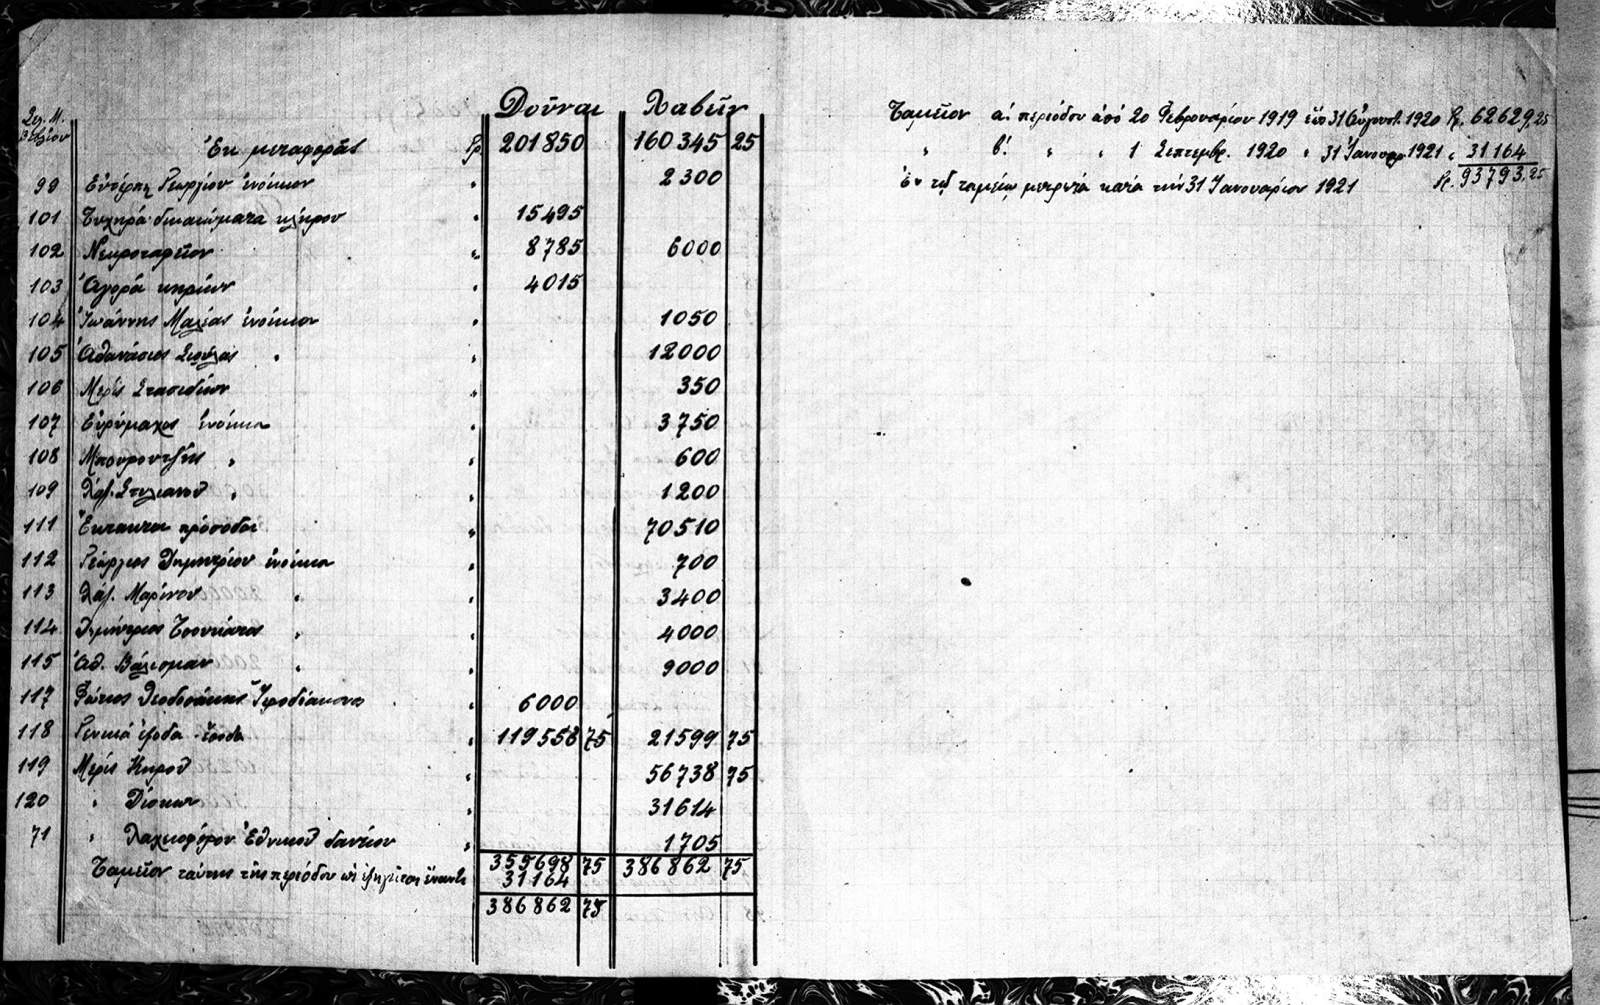 Δοῦναι Λαβεῖν
Σελ. Μ.
Βιβλίου
Ἐκ μεταφορᾶς Γρ. 201850 160345 25
99 Εὐτέρπη Γεωργίου ἐνοίκιον " 2300
101 Τυχηρά δικαιώματα κλήρου " 15495
102 Νεκροταφεῖον " 8785 6000
103 Ἀγορά κηρίων " 4015
104 Ἰωάννης Μαλέας ἐνοίκιον " 1050
105 Ἀθανάσιος " " 12000
106 Μερίς Στασιδίων " 350
107 Εὐρύμαχος ἐνοίκια " 3750
108 Μπουρουτζῆς " " 600
109 Χαρ. Στυλιανοῦ " " 1200
111 Ἔκτακτοι πρόσοδοι " 70510
112 Γεώργιος Δημητρίου ἐνοίκια " 700
113 Χαρ. Μαρίνου " " 3400
114 Δημήτριος " " 4000
115 Ἀθ. Βάλσμαν " " 9000
117 Φώτιος Θεοδοσάκης Ἱεροδιάκονος " 6000
118 Γενικά ἔξοδα ἔσοδα " 119553 75 21599 75
119 Μερίς Κηροῦ " 56738 75
120 " Δίσκων " 31614
71 " Λαχειοφόρου Ἐθνικοῦ δανείου " 1705
355698 75 386862 75
Ταμεῖον ταύτης τῆς περιόδου ὡς ἐξηγεῖται ἔναντι 31164
386862 75
Ταμεῖον α΄. περιόδου ἀπό 20 Φεβρουαρίου 1919 ἕως 31 Αὐγούστ. 1920 Γρ. 62629,25
" β΄. " " 1 Σεπτεμβρ. 1920 " 31 Ἰανουαρ 1921 " 31164
Ἐν τῷ ταμείῳ μετρητά κατά τήν 31 Ἰανουαρίου 1921 Γρ. 93793,25